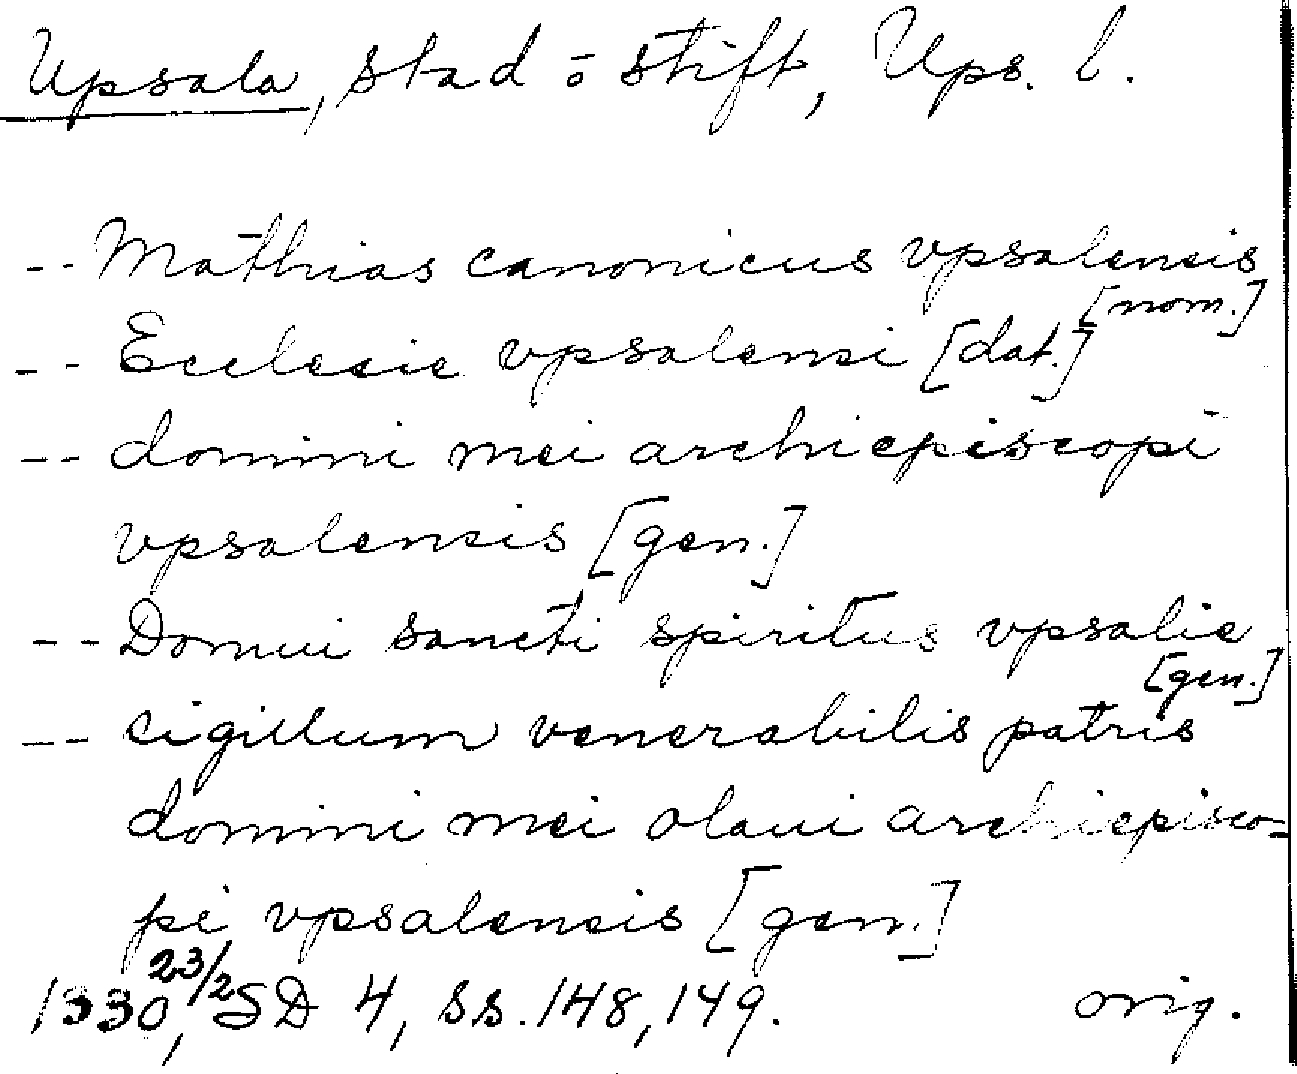 Upsala, stad o stift, Ups. l.
-- Mathias canonicus vpsalensis
[nom.]
-- Ecclesie vpsalensi [dat.]
-- domini mei archiepiscopi
vpsalensis [gen.]
-- Domui sancti spiritus vpsalie
[gen.]
-- sigillum venerabilis patris
domini mei olaui archiepisco-
pi vpsalensis [gen.]
1330, 23/2 SD 4, ss. 148, 149. orig.